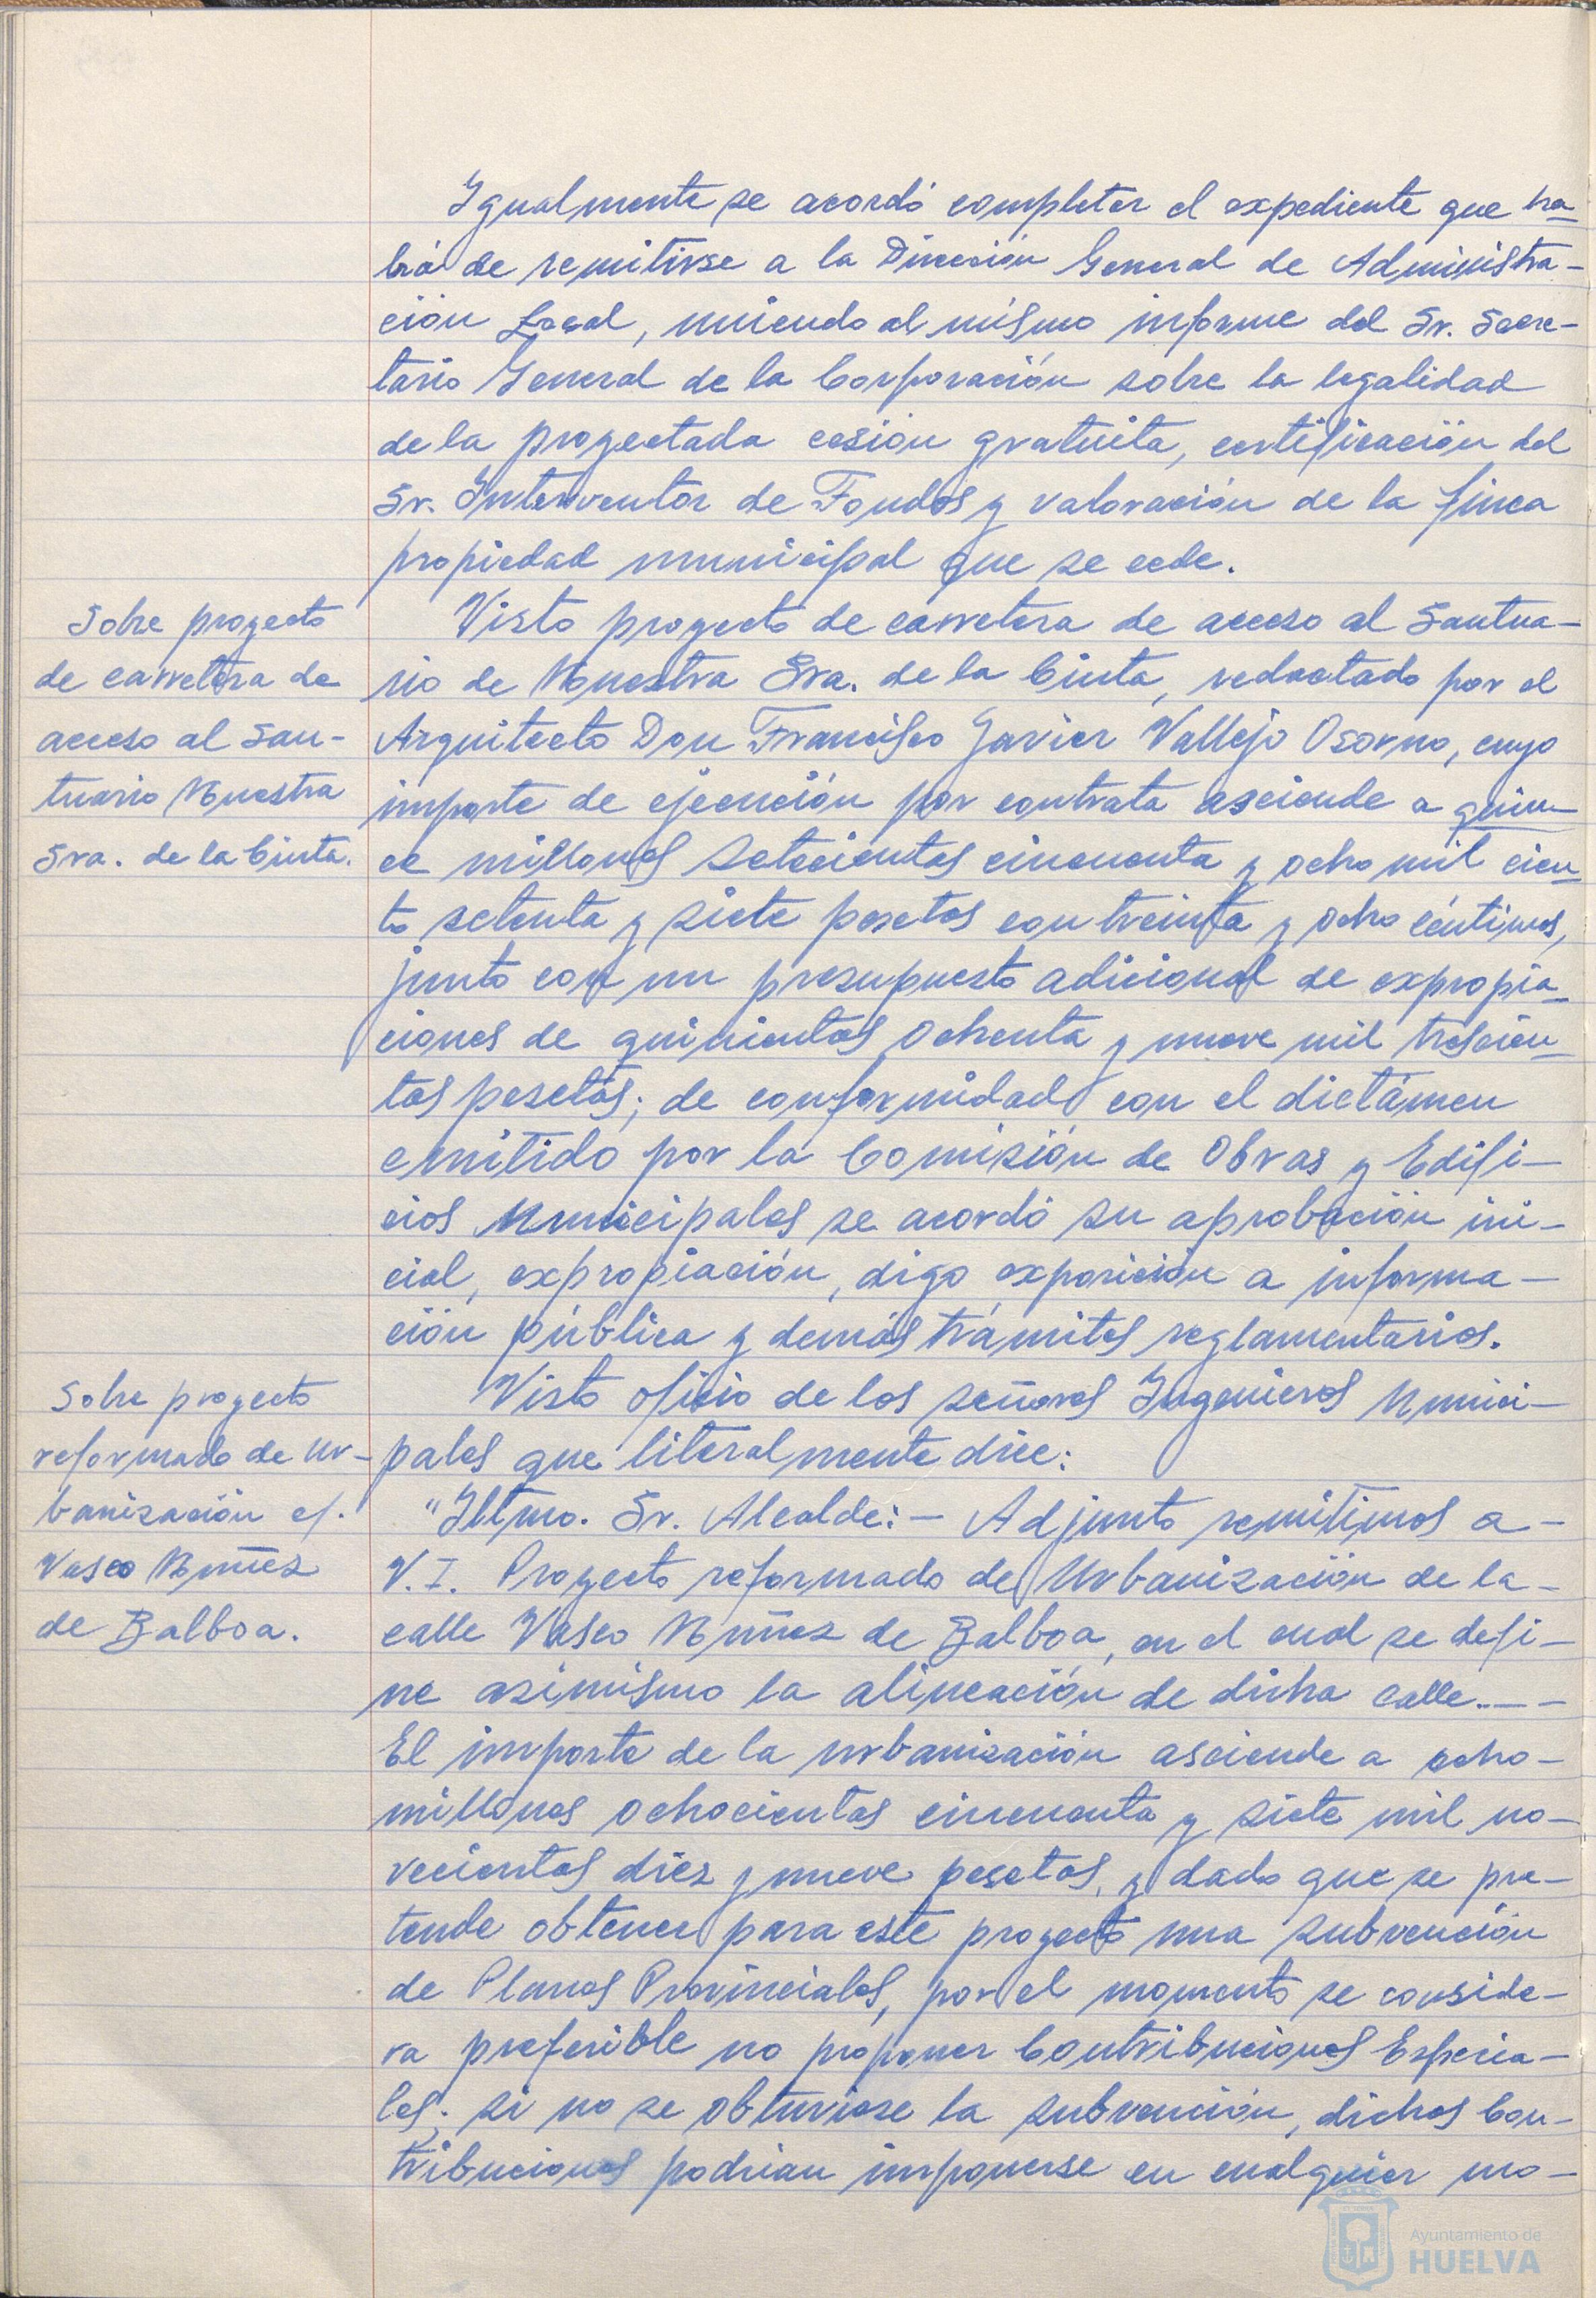 Igualmente se acordó completar el expediente que ha-
brá de remitirse a la Dirección General de Administra-
ción Local, uniendo al mismo informe del Sr. Secre-
tario General de la Corporación sobre la legalidad
de la proyectada cesión gratuita, certificación del
Sr. Interventor de Fondos y valoración de la finca
propiedad municipal que se cede.
Sobre proyecto
de carretera de
acceso al San-
tuario Nuestra
Sra. de la Cinta.
Visto proyecto de carretera de acceso al Santua-
rio de Nuestra Sra. de la Cinta, redactado por el
Arquitecto Don Francisco Javier Vallejo Osorno, cuyo
importe de ejecución por contrata asciende a quin-
ce millones setecientas cincuenta y ocho mil cien-
to setenta y siete pesetas con treinta y ocho céntimos,
junto con un presupuesto adicional de expropia-
ciones de quinientas ochenta y nueve mil trescien-
tas pesetas; de conformidad con el dictámen
emitido por la Comisión de Obras y Edifi-
cios Municipales se acordó su aprobación ini-
cial, expropiación, digo, exposición a informa-
ción pública y demás trámites reglamentarios.
Sobre proyecto
reformado de Ur-
banización c/.
Vasco Núñez
de Balboa.
Visto oficio de los señores Ingenieros Munici-
pales que literalmente dice:
"Iltmo. Sr. Alcalde: - Adjunto remitimos a -
V.I. Proyecto reformado de Urbanización de la -
calle Vasco Núñez de Balboa, en el cual se defi-
ne asimismo la alineación de dicha calle.- - -
El importe de la urbanización asciende a ocho -
millones ochocientas cincuenta y siete mil no-
vecientas diez y nueve pesetas, y dado que se pre-
tende obtener para este proyecto una subvención
de Planes Provinciales, por el momento se conside-
ra preferible no proponer Contribuciones Especia-
les; si no se obtuviese la subvención, dichas Con-
tribuciones podrian imponerse en cualquier mo-
Ayuntamiento de
HUELVA